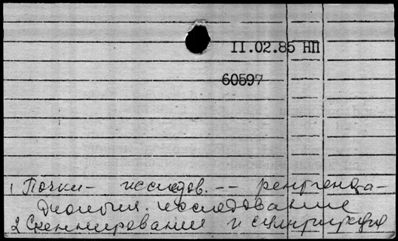 11.02.85 НП
60597
1 Почки - исследов. -- рентгенда-
диология. исследование
2 Сканирование и сцинтиграфия